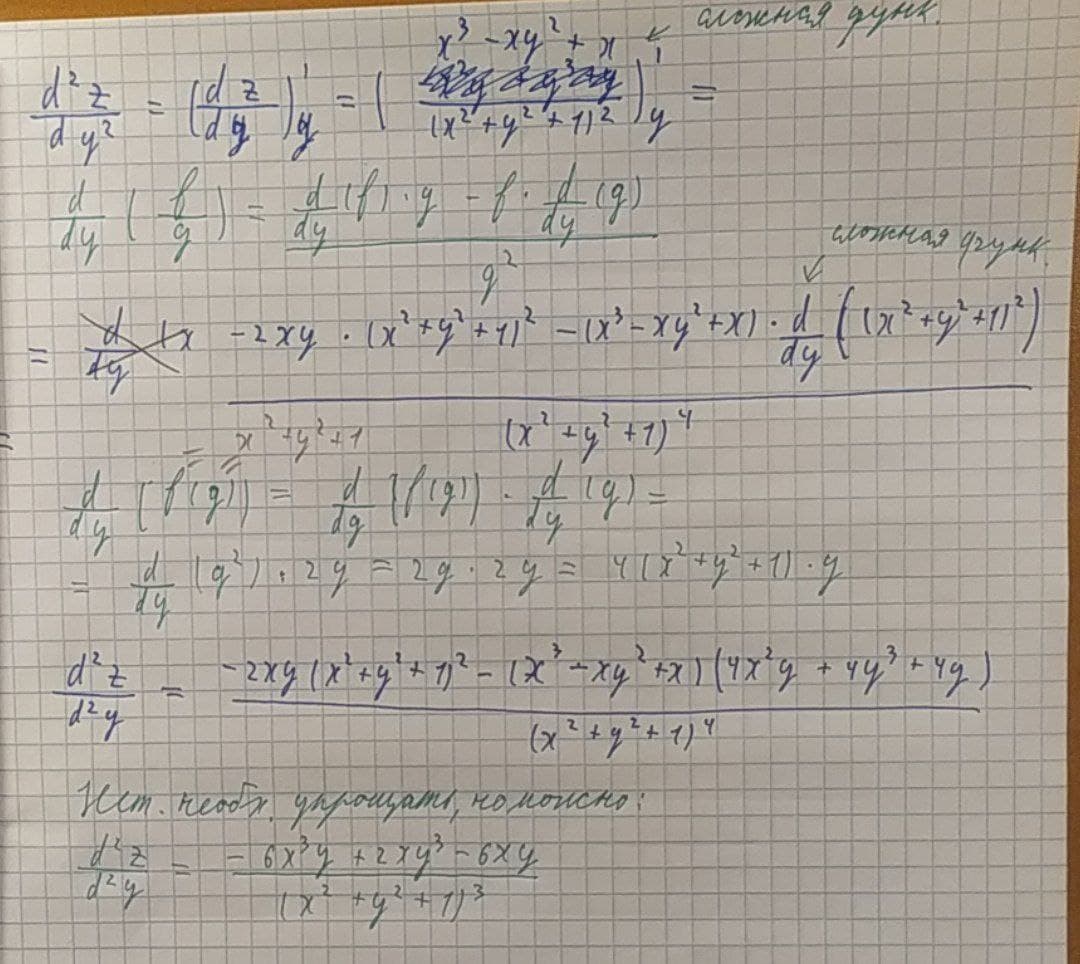 сложная функ.
d²z/dy² = (dz/dy)'y = ( x³ - xy² + x / (x² + y² + 1)² )'y =
d/dy ( f/g ) = d/dy (f) · g - f · d/dy (g) / g²
сложная функ.
= -2xy · (x² + y² + 1)² - (x³ - xy² + x) · d/dy ((x² + y² + 1)²) / (x² + y² + 1)⁴
= x² + y² + 1
d/dy (f(g)) = d/dg (f(g)) · d/dy (g) =
= d/dy (g²) · 2y = 2g · 2y = 4(x² + y² + 1) · y
d²z/d²y = -2xy (x² + y² + 1)² - (x³ - xy² + x)(4x²y + 4y³ + 4y) / (x² + y² + 1)⁴
необх. упрощать, но можно:
d²z/d²y = -6x³y + 2xy³ - 6xy / (x² + y² + 1)³